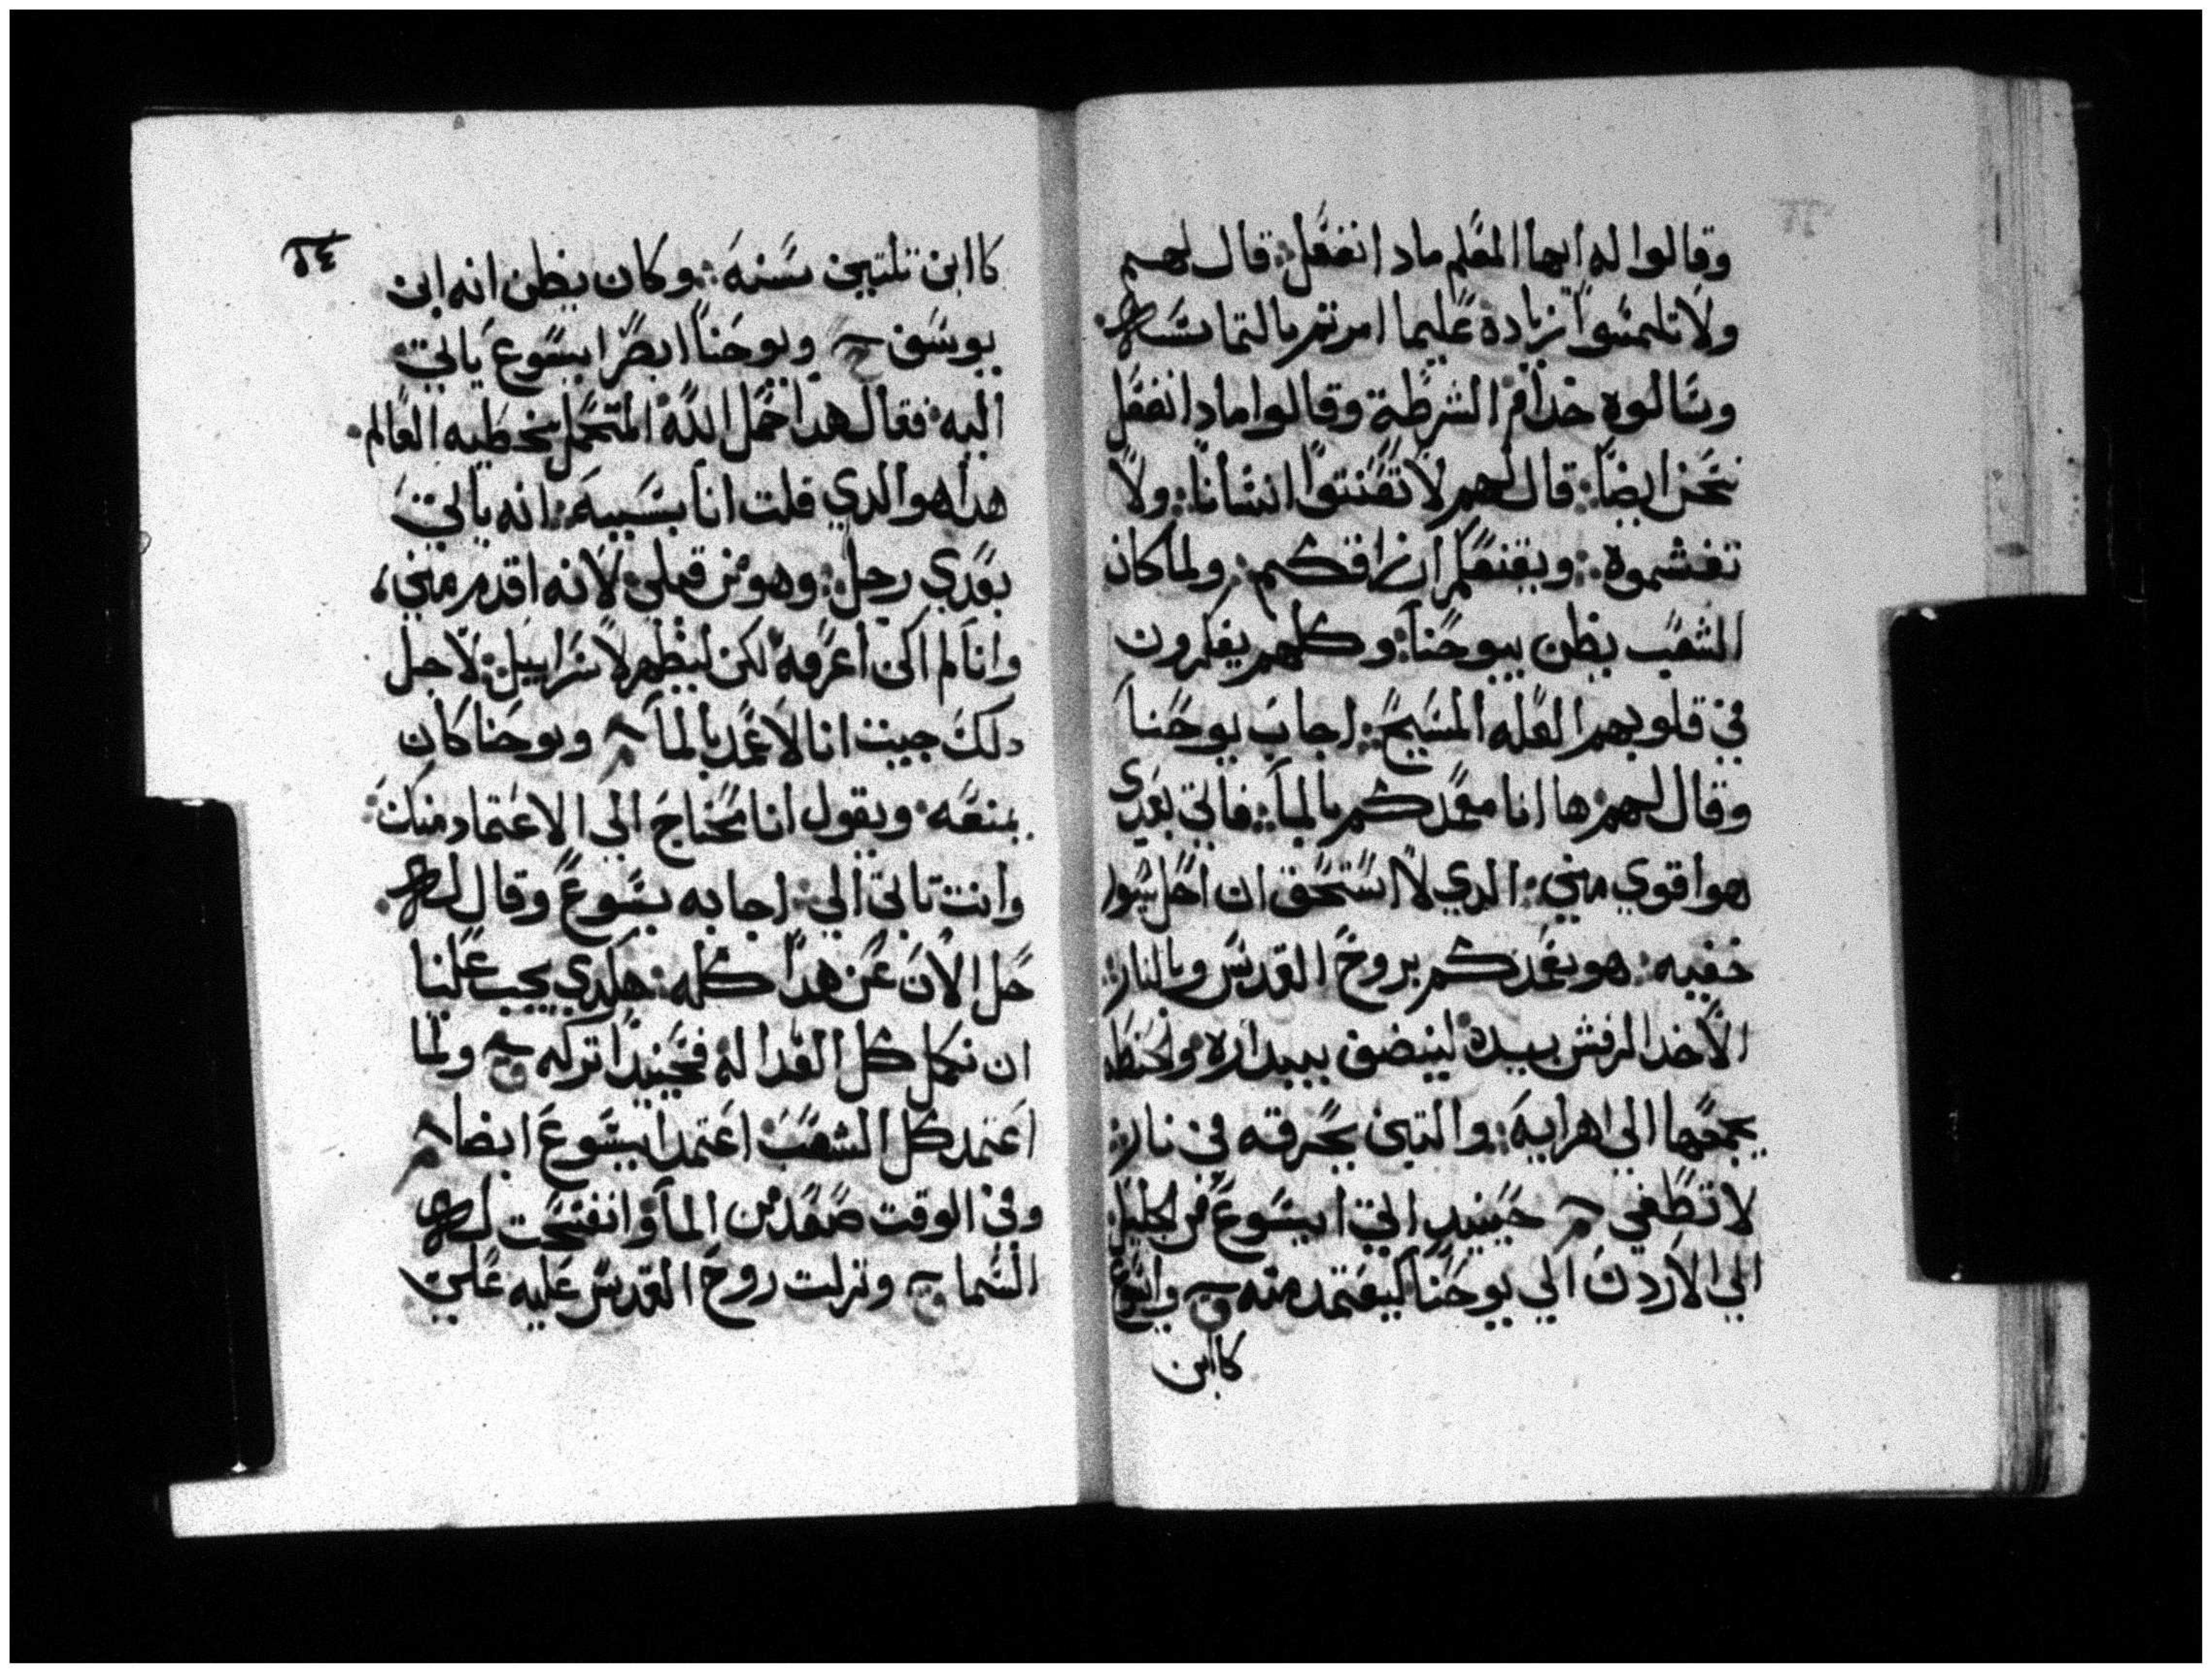 وقالوا له ايها المعلم مادا نفعل: قال لهم
ولا تلتمسوا زياده عليما امرتم بالتماسه
وسالوه خدام الشرطة وقالوا مادا نفعل
نحن ايضا: قال لهم لا تعنتوا انسانا: ولا
تغشموه: ويقنعكم ارزاقكم: ولما كان
الشعب يظن بيوحنا: وكلهم يفكرون
في قلوبهم العله المسيح: اجاب يوحنا
وقال لهم: ها انا معمدكم بالما: فاتي بعدي
هوا قوي مني: الدي لا استحق ان احل سيور
خفيه: هو يعمدكم بروح القدس وبالنار:
الاخد الرفش بيده لينضف بيداره ولحنطه
يجمعها الي اهرايه: والتبن يحرقه في نار:
لا تطفي حينيد اتي ايسوع من الجليل
الي الاردن الي يوحنا ليعتمد منه وايسوع
كاابن
٥٤
كاابن تلتين سنه: وكان يظن انه ابن
يوسف ويوحنا ابصر ايسوع ياتي
اليه: فقال هدا حمل الله المتحمل بخطيه العالم
هدا هو الدي قلت انا بسبيه: انه ياتي
بعدي رجل: وهو من قبلي لانه اقدم مني
وانا لم اكن اعرفه لكن ليظهر لاسراييل: لاجل
دلك جيت انا لاعمد بالما ويوحنا كان
يمنعه: ويقول انا محتاج الي الاعتماد منك:
وانت تاتي الي: اجابه يسوع وقال له
حل الان عن هدا كله: هكدي يجب علينا
ان نكمل كل العداله فحينيدا تركه ولما
اعتمد كل الشعب: اعتمد ايسوع ايضا
وفي الوقت صعد من الما وانفتحت له
السما ونزلت روح القدس عليه علي